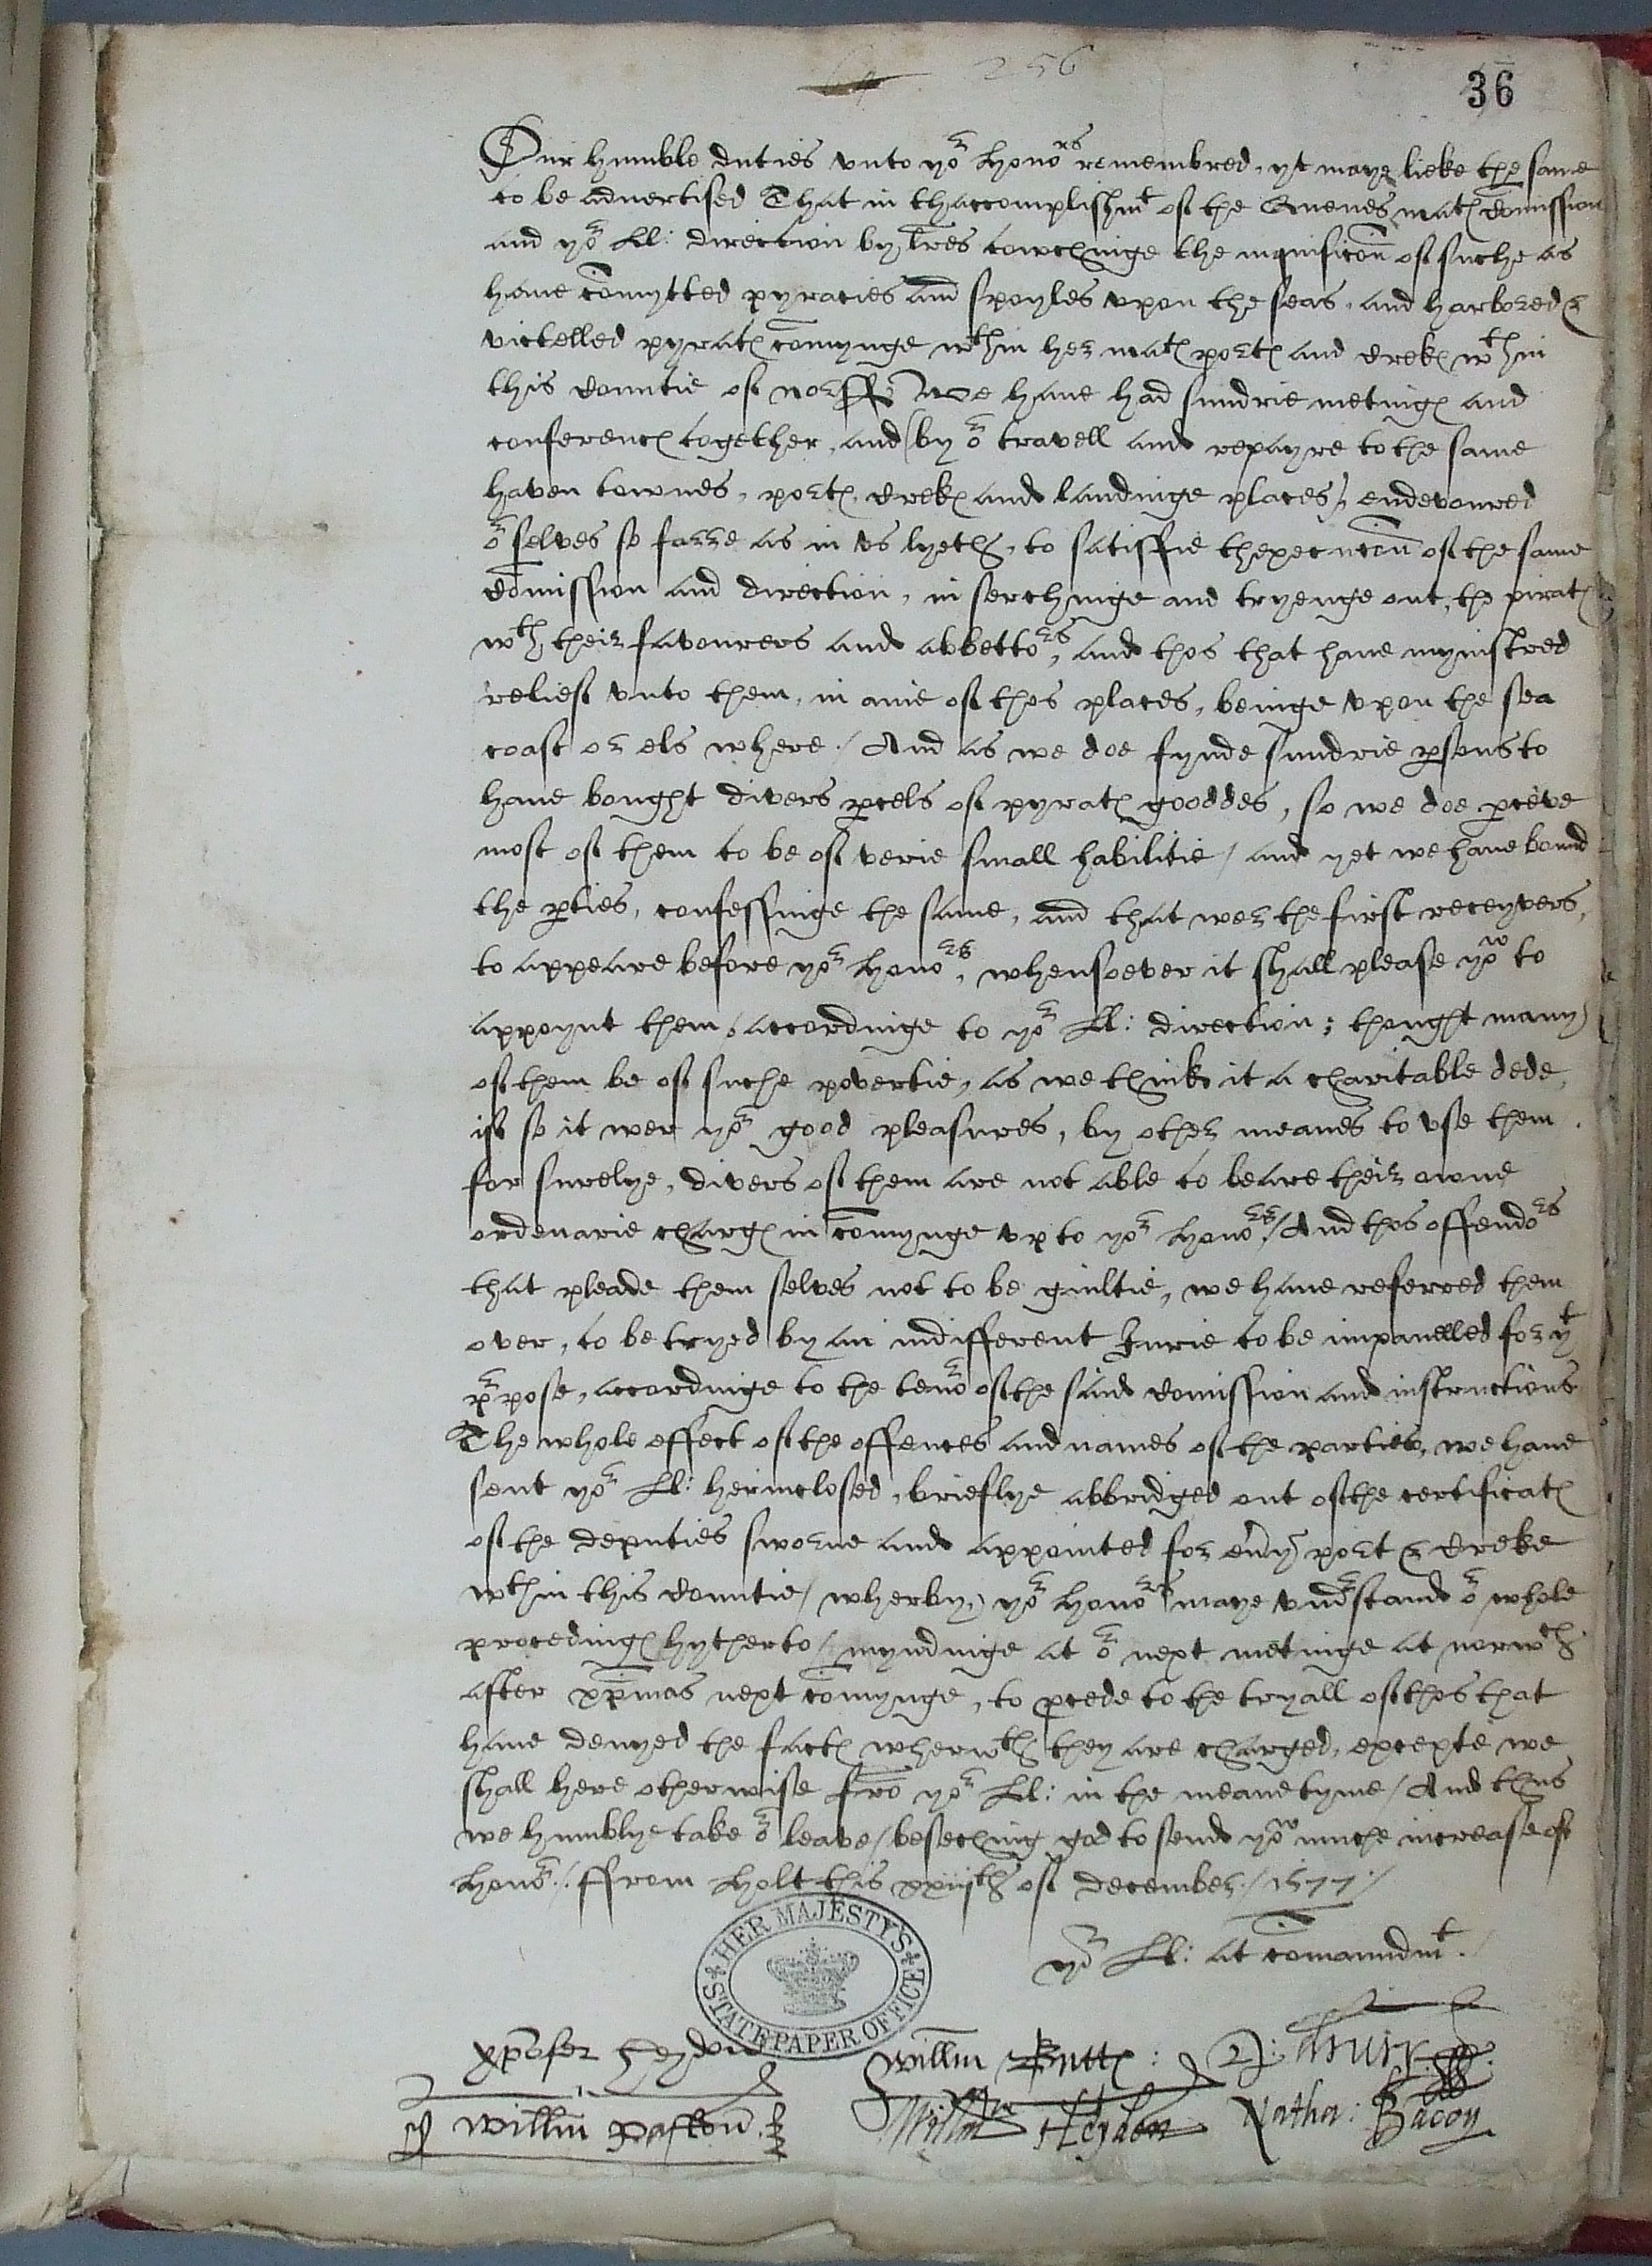 256
36
Our humble duties vnto yor honors remembred, yt maye lieke the same
to be aduertised That in thaccomplishmt of the Quenes mats Comission
and yor Ll: direction by lres towchinge the inquisicon of suche as
haue comytted pyracies and spoyles vpon the seas, and harbored &
victelled pyrats comynge wthin her mats ports and Creks wthin
this Countie of Norff We haue had sundrie metings and
conferencs together, and (by or travell and repayre to the same
haven townes, ports, Creks and landinge places) endevoured
or selves so farre as in vs lyeth, to satisffie thexecucon of the same
Comission and direction, in serchinge and tryenge out, the pirats
wth their favourers and abbettors, and thos that haue mynistred
relief vnto them, in anie of thos places, beinge vpon the sea
coast or els where / And as we doe fynde sundrie psons to
haue bought divers pcels of pyrats gooddes, so we doe pceve
most of them to be of verie small habilitie / and yet we haue bound
the pties, confessinge the same, and that wer the first receyvers,
to appeare before yor honors, whensoever it shall please yow to
appoynt them, accordinge to yor Ll: direction; thought many
of them be of suche povertie, as we think it a charitable dede,
if so it wer yor good pleasures, by other meanes to vse them.
for surelye, divers of them are not able to beare their owne
ordenarie chargs in comynge vp to yor honors / And thos offendors
that pleade them selves not to be guiltie, we haue referred them
over, to be tryed by an indifferent Jurie to be impanelled for yt
prpose, accordinge to the tenor of the said Comission and instructions
The whole effect of the offences and names of the parties, we haue
sent yor Ll: herinclosed, brieflye abbridged out of the certificats
of the deputies sworne and appointed for euy port & Creke
wthin this Countie / wherby yor honors maye vndrstand or whole
procedings hytherto / myndinge at or next metinge at norwch
after xpmas next comynge, to pcede to the tryall of thos that
haue denyed the facts wherwth they are charged, excepte we
shall here otherwise fro yor Ll: in the meane tyme / And thus
we humblye take or leave / beseching god to send yow muche increase of
honor ./. ffrom Holt this xxiijth of December / 1577 /
yor Ll: at comaundmt.
HER MAJESTY'S STATE PAPER OFFICE
Xpofer Heydon Willm Butts: D: Drury
Willm Paston Willm Heydon Natha: Bacon